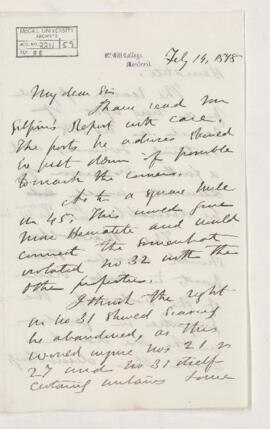 McGILL UNIVERSITY
ARCHIVES
ACC. NO. 2211/59
REF.
McGill College,
Montreal.
Feby 14, 1878
My dear Sir
I have read Mr
Gilpin's Report with care.
The posts he advises should
be put down if possible
to mark the corners.
As to a square mile
in 45, this would give
more Hematite and would
connect the somewhat
isolated no 32 with the
other properties.
I think the right
in no 31 should scarcely
be abandoned, as this
would injure nos 21 &
27 and no 31 itself
certainly contains some